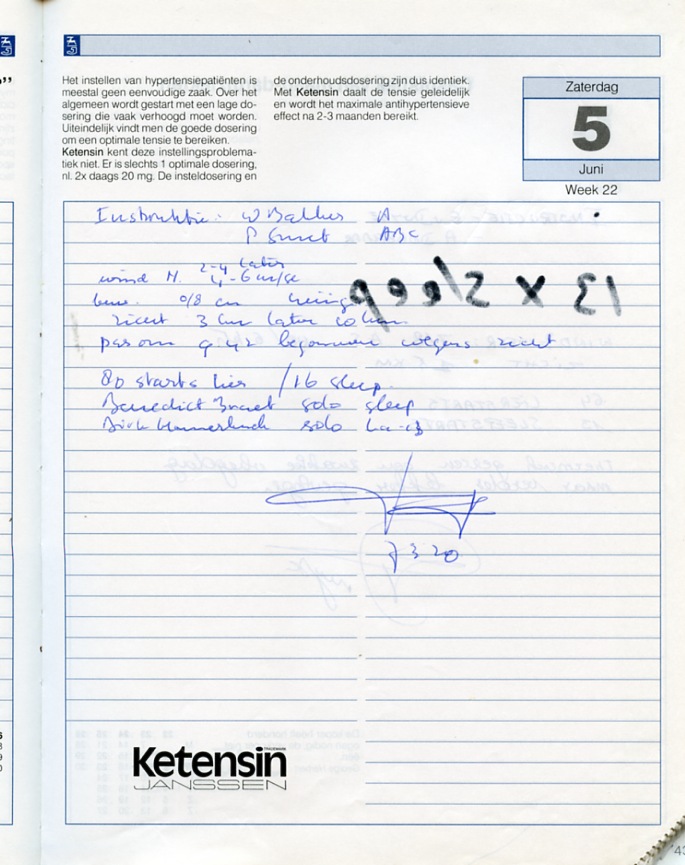 Het instellen van hypertensiepatiënten is
meestal geen eenvoudige zaak. Over het
algemeen wordt gestart met een lage do-
sering die vaak verhoogd moet worden.
Uiteindelijk vindt men de goede dosering
om een optimale tensie te bereiken.
Ketensin kent deze instellingsproblema-
tiek niet. Er is slechts 1 optimale dosering,
nl. 2x daags 20 mg. De insteldosering en
de onderhoudsdosering zijn dus identiek.
Met Ketensin daalt de tensie geleidelijk
en wordt het maximale antihypertensieve
effect na 2-3 maanden bereikt.
Zaterdag
5
Juni
Week 22
Instruktie: W Bakker A
P Smet ABC
2-4 later
wind N. 4-6 m/sec
0/8 cu
13 x sleep
zicht 3 km later 10 km
pas om 9 42 begonnen wegens zicht
80 starts lier /16 sleep.
Benedict solo sleep
Dirk solo
Ketensin
JANSSEN